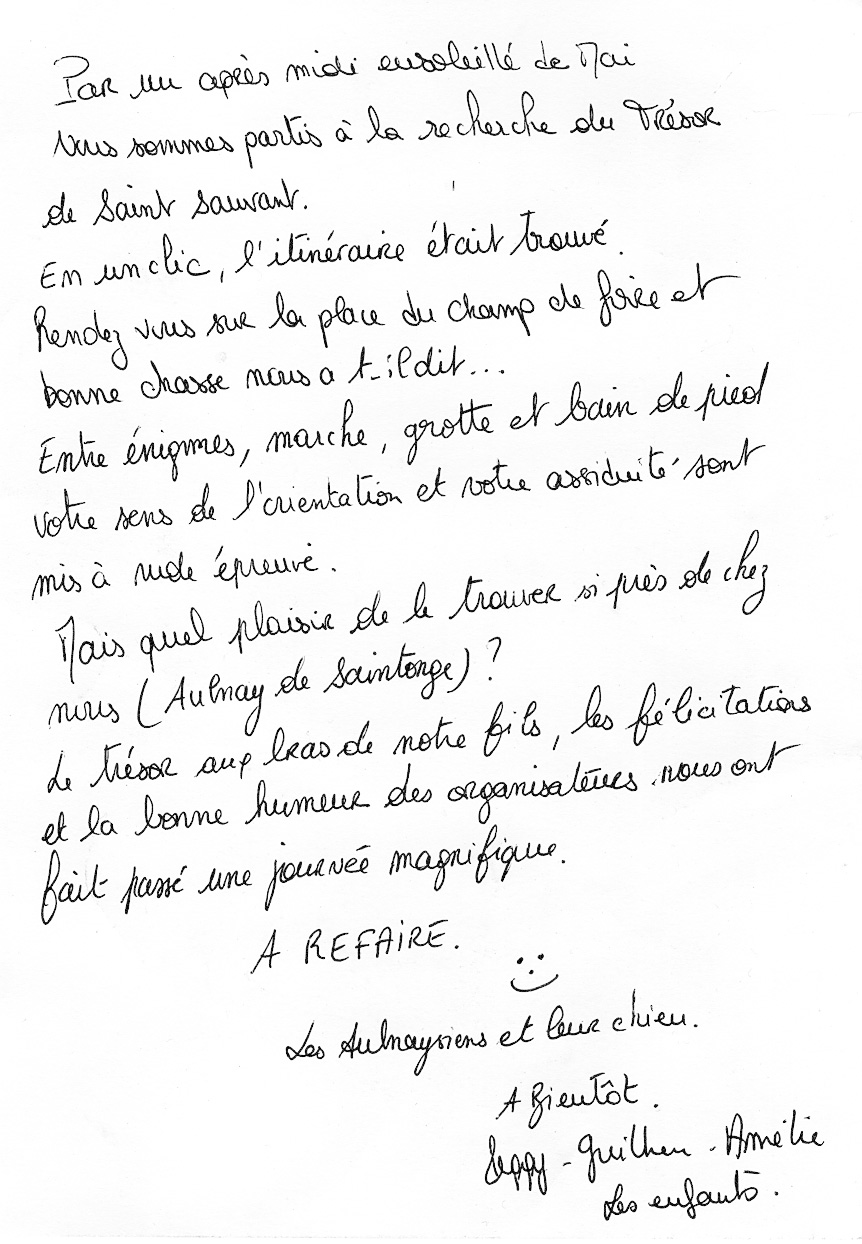 Par un après midi ensoleillé de Mai
nous sommes partis à la recherche du Trésor
de Saint Sauvant.
En un clic, l'itinéraire était trouvé.
Rendez vous sur la place du champ de foire et
bonne chasse nous a t-il dit...
Entre énigmes, marche, grotte et bain de pied
votre sens de l'orientation et votre assiduité sont
mis à rude épreuve.
Mais quel plaisir de le trouver si près de chez
nous (Aulnay de Saintonge) ?
Le trésor aux bras de notre fils, les félicitations
et la bonne humeur des organisateurs nous ont
fait passé une journée magnifique.
A REFAIRE.
Les Aulnaysiens et leur chien.
A Bientôt.
Peggy - Guilhem - Amélie
Les enfants.